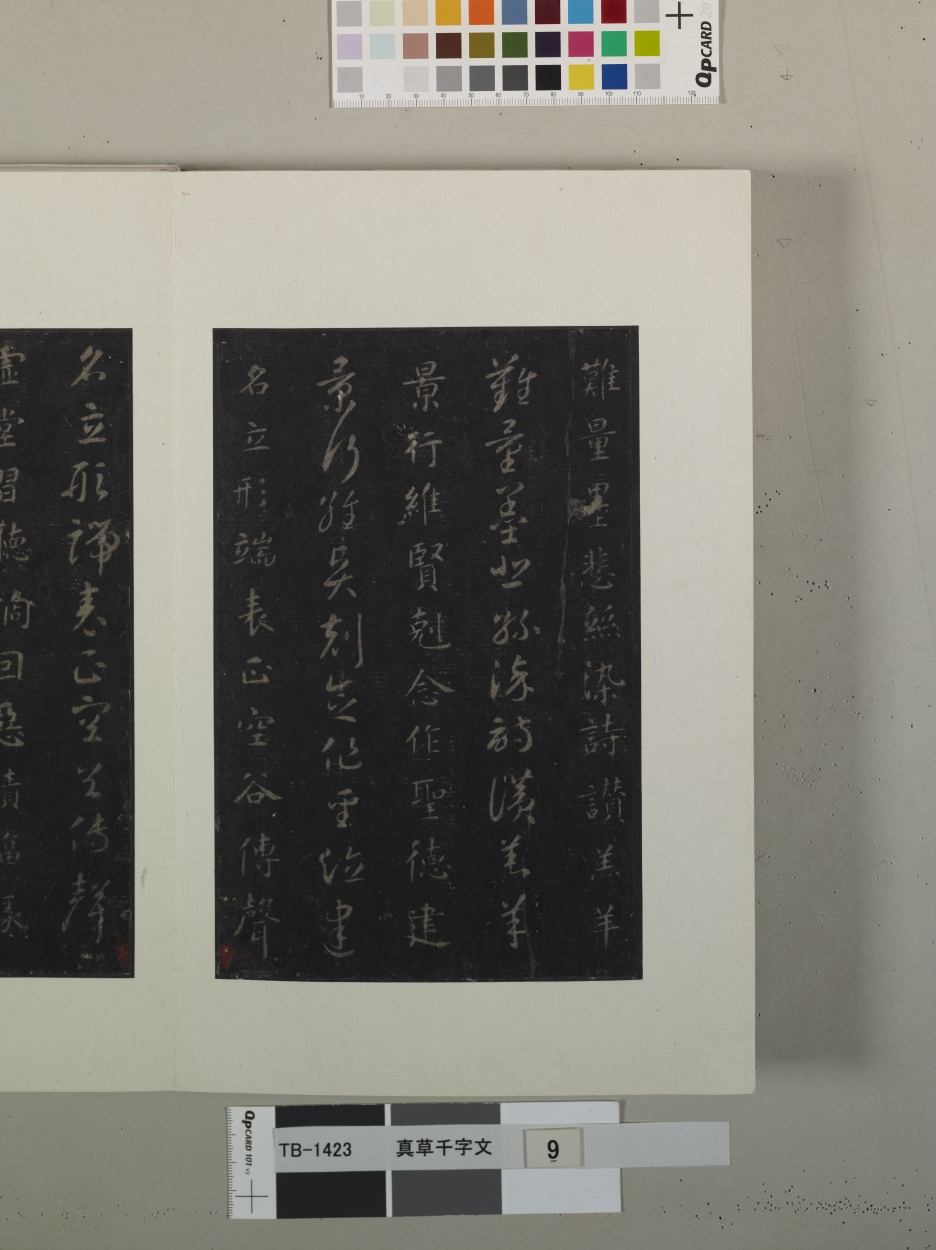 難量墨悲絲染詩讚羔羊
難量墨悲絲染詩讚羔羊
景行維賢剋念作聖德建
景行維賢剋念作聖德建
名立形端表正空谷傳聲
名立形端表正空谷傳聲
虛堂習聽禍因惡積福
QPCARD 201
10 20 30 40 50 60 70 80 90 100 110 130
QPCARD 101 v2
TB-1423 真草千字文 9